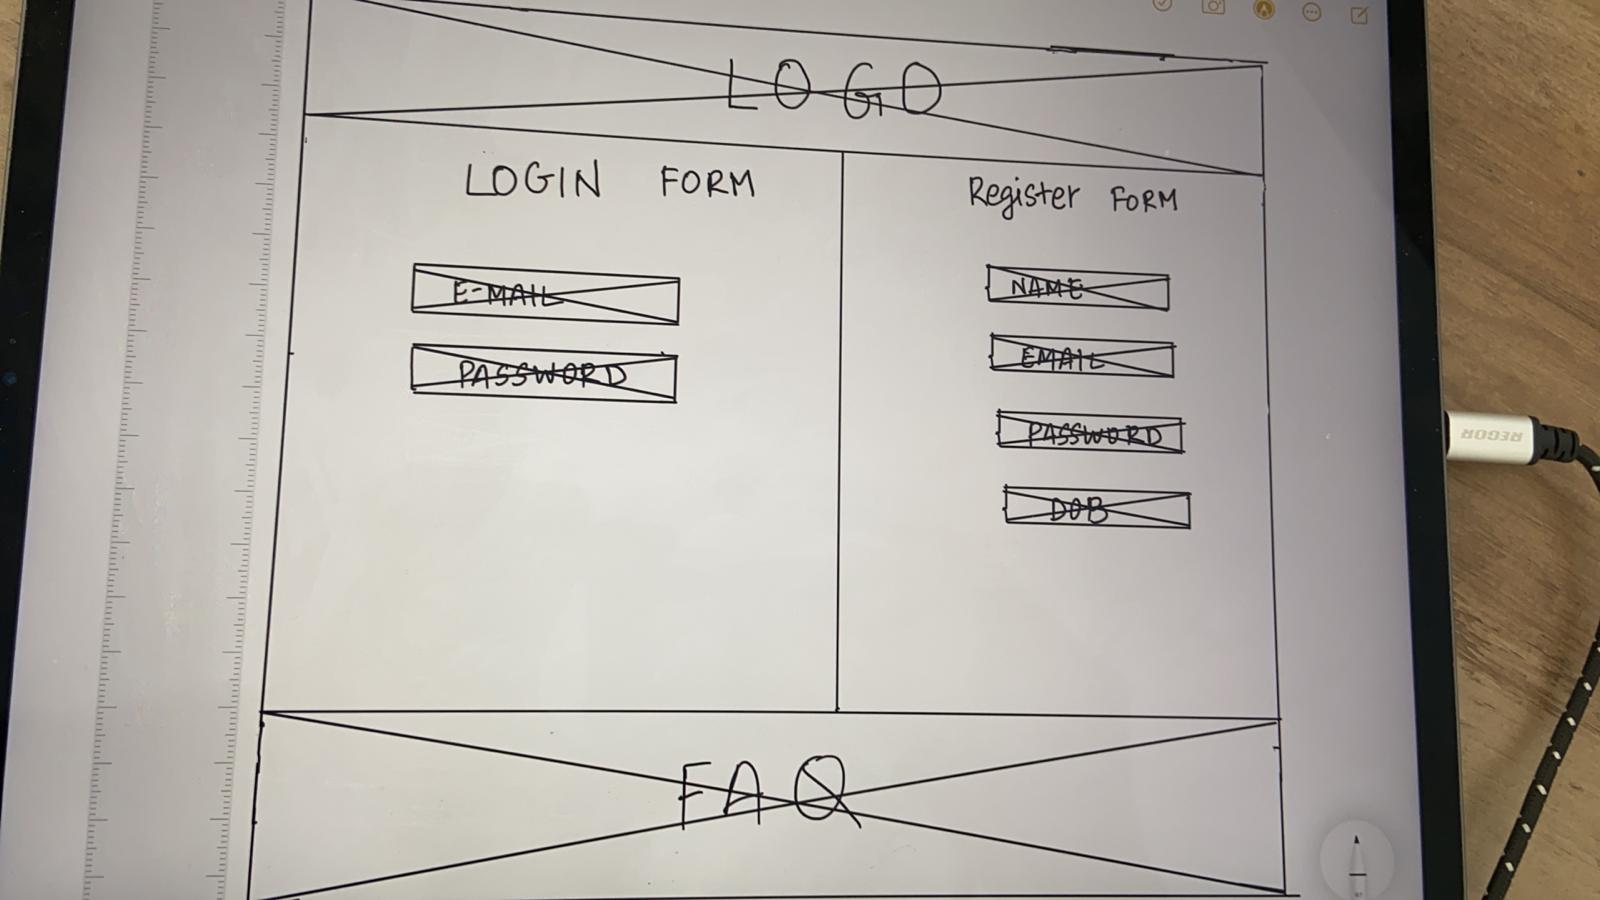 LOGO
LOGIN FORM
E-MAIL
PASSWORD
Register FORM
NAME
EMAIL
PASSWORD
DOB
FAQ
REGOR